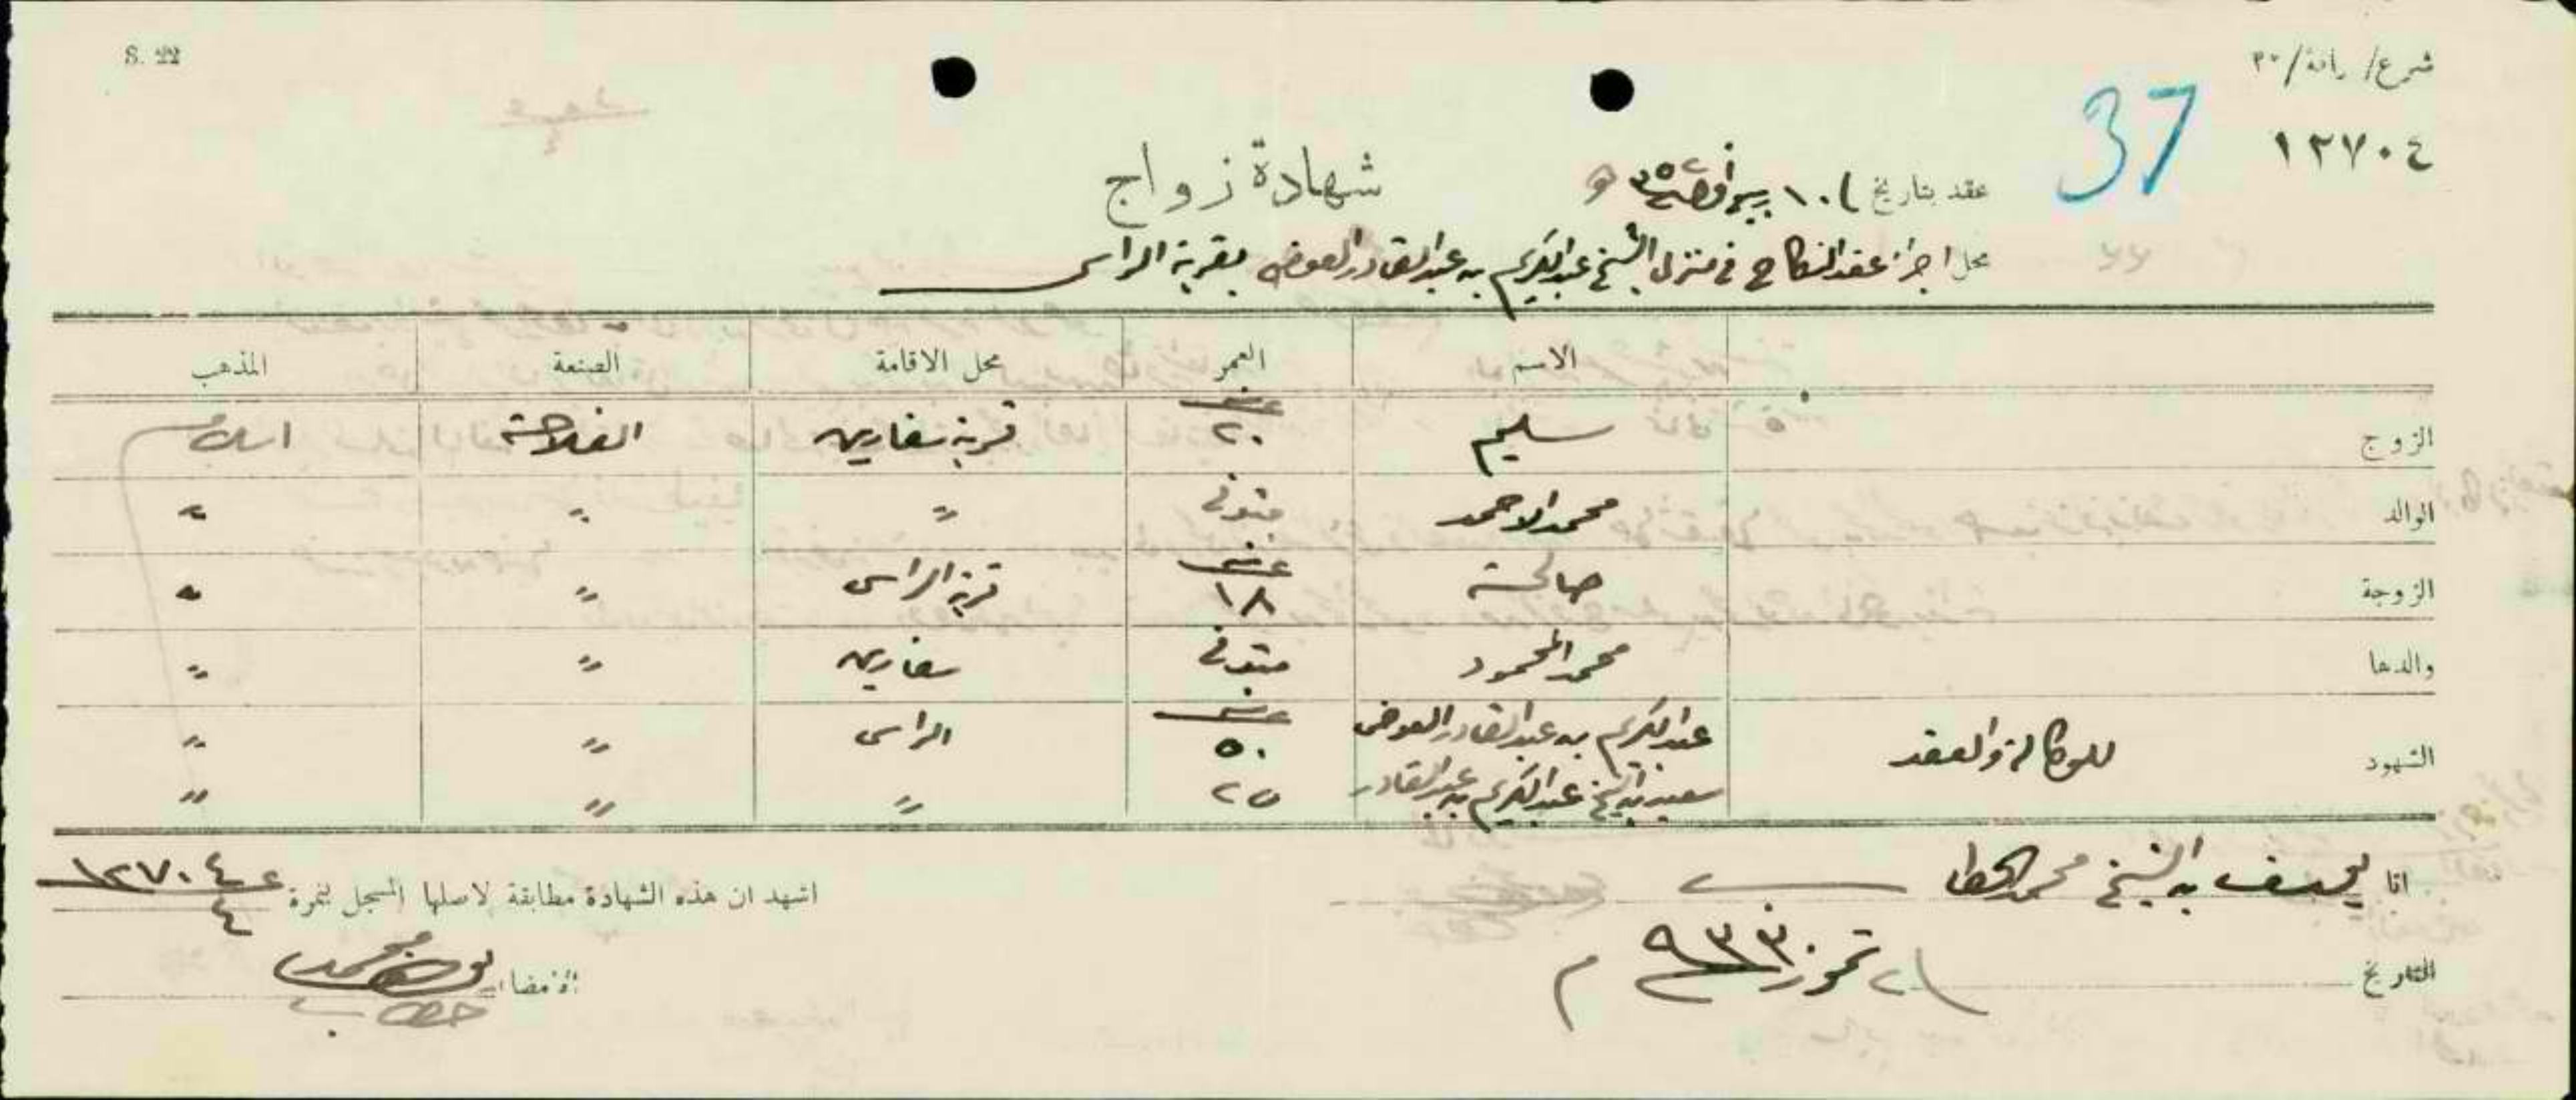 S. 22
شرع/ رانة/٣٠
37
١٢٧٠٤
شهادة زواج
عقد بتاريخ ١٠ ربيع أول سنة ٣٥٢ هـ
محل اجراء عقد النكاح في منزل الشيخ عبدالكريم بن عبدالقادر العوض بقرية الراس
الاسم العمر محل الاقامة الصنعة المذهب
الزوج سليم ٢٠ قرية سفارين الفلاحة اسلام
الوالد محمد الاحمد متوفى " " "
الزوجة صالحة ١٨ قرية الراس " "
والدها محمد المحمود متوفى سفارين " "
الشهود للوكالة والعقد عبدالكريم بن عبدالقادر العوض ٥٠ الراس " "
سعيد بن الشيخ عبدالكريم بن عبدالقادر ٢٥ " " "
انا يوسف بن الشيخ محمد الخطاب
اشهد ان هذه الشهادة مطابقة لاصلها المسجل بنمرة ١٢٧٠٤
التاريخ ٢ تموز ٩٣٣ م
الامضاء يوسف محمد خطاب